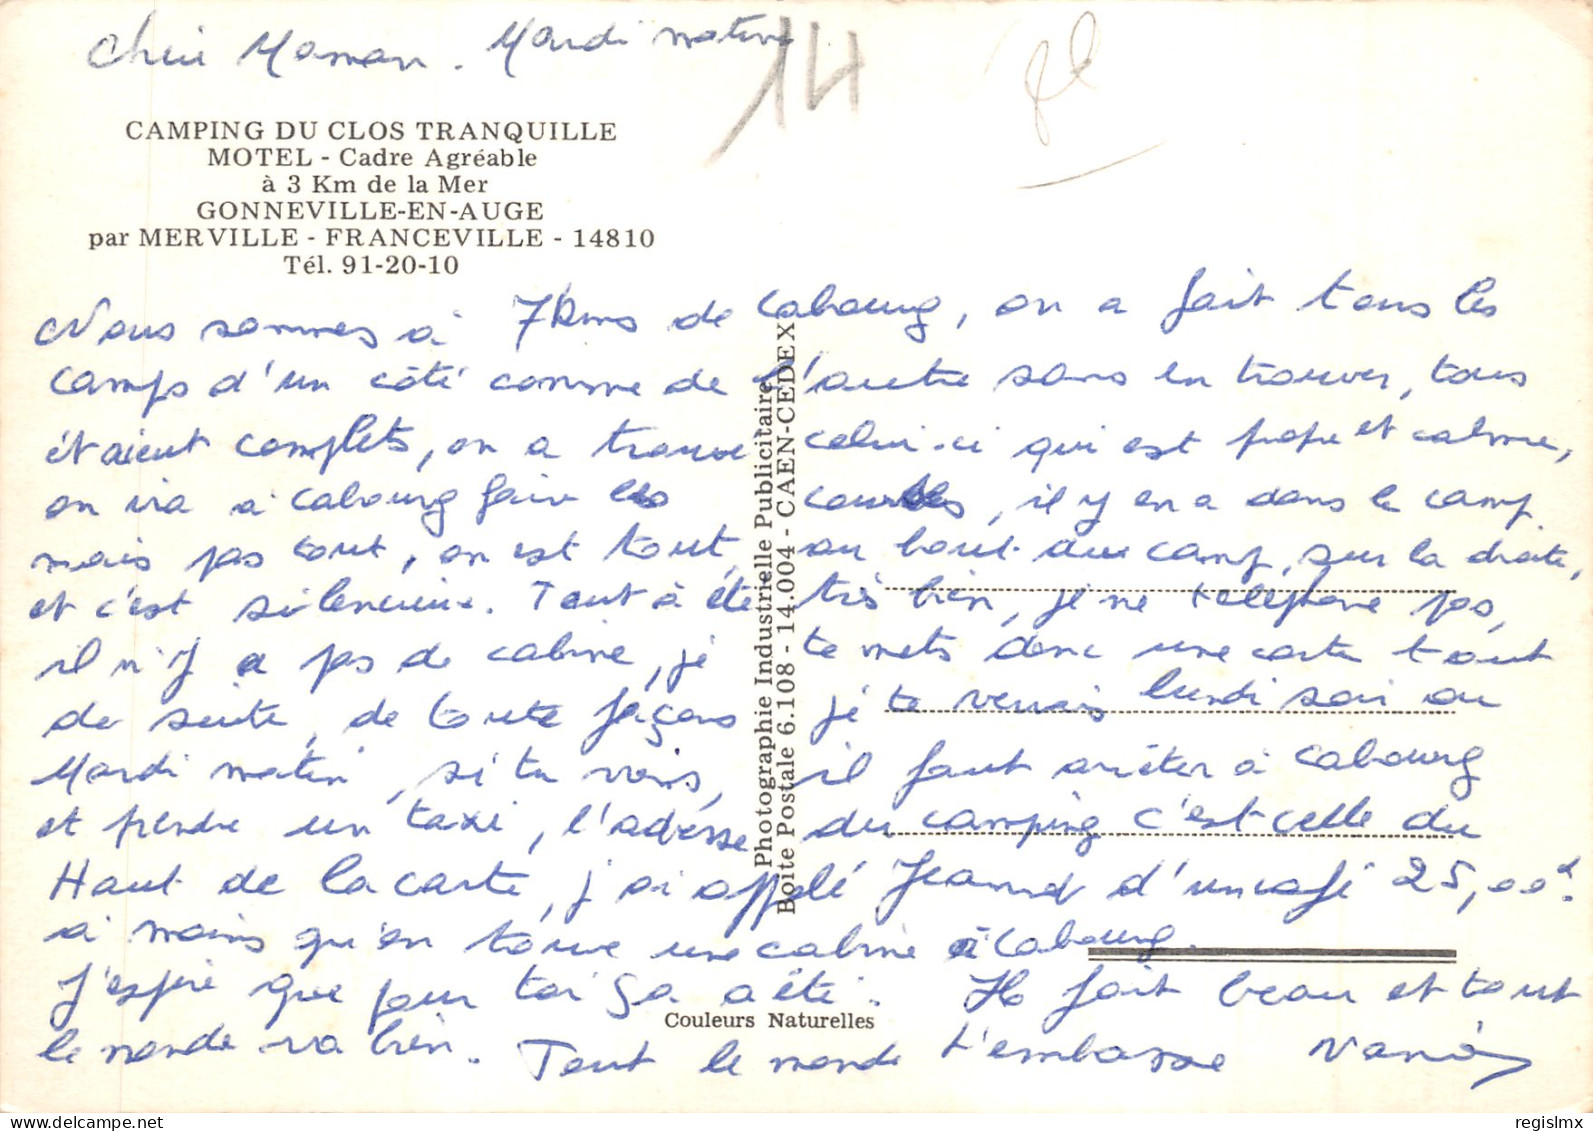 Chère Maman. Mardi matin
14
CAMPING DU CLOS TRANQUILLE
MOTEL - Cadre Agréable
à 3 Km de la Mer
GONNEVILLE-EN-AUGE
par MERVILLE - FRANCEVILLE - 14810
Tél. 91-20-10
Nous sommes à 7 kms de Cabourg, on a fait tous les
camps d'un côté comme de l'autre sans en trouver, tous
étaient complets, on a trouvé celui-ci qui est propre et calme,
on va à Cabourg faire les courses, il y en a dans le camp
mais pas tout, on est tout au bout du camp, sur la droite,
et c'est silencieux. Tout à été très bien, je ne téléphone pas,
il n'y a pas de cabine, je te mets donc une carte tout
de suite, de toute façons je te verrais lundi soir ou
Mardi matin, si tu viens, il faut arrêter à Cabourg
et prendre un taxi, l'adresse du camping c'est celle du
Haut de la carte, j'ai appelé Jeannot d'un café 25,00
à moins qu'on trouve une cabine à Cabourg.
J'espère que pour toi ça a été. Il fait beau et tout
le monde va bien. Tout le monde t'embrasse
Photographie Industrielle Publicitaire
Boîte Postale 6.108 - 14.004 - CAEN-CEDEX
Couleurs Naturelles
regislmx